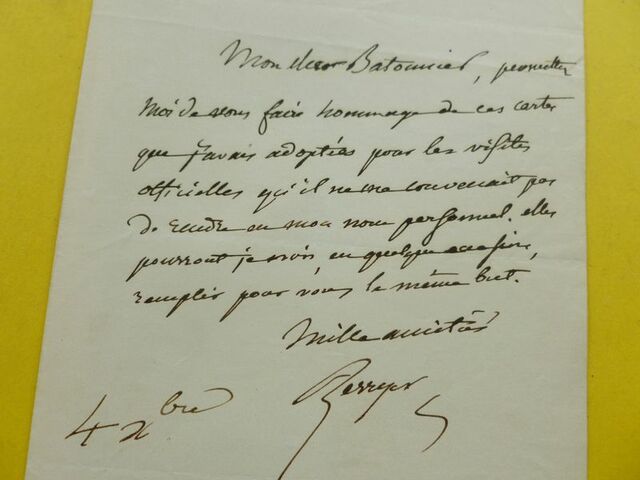 Mon cher Batonnier, permettez
moi de vous faire hommage de ces cartes
que j'avais adoptées pour les visites
officielles qu'il ne me convenait pas
de rendre en mon nom personnel. elles
pourront je crois, en quelque occasion,
remplir pour vous le même but.
Mille amitiés
Berryer
4 Xbre